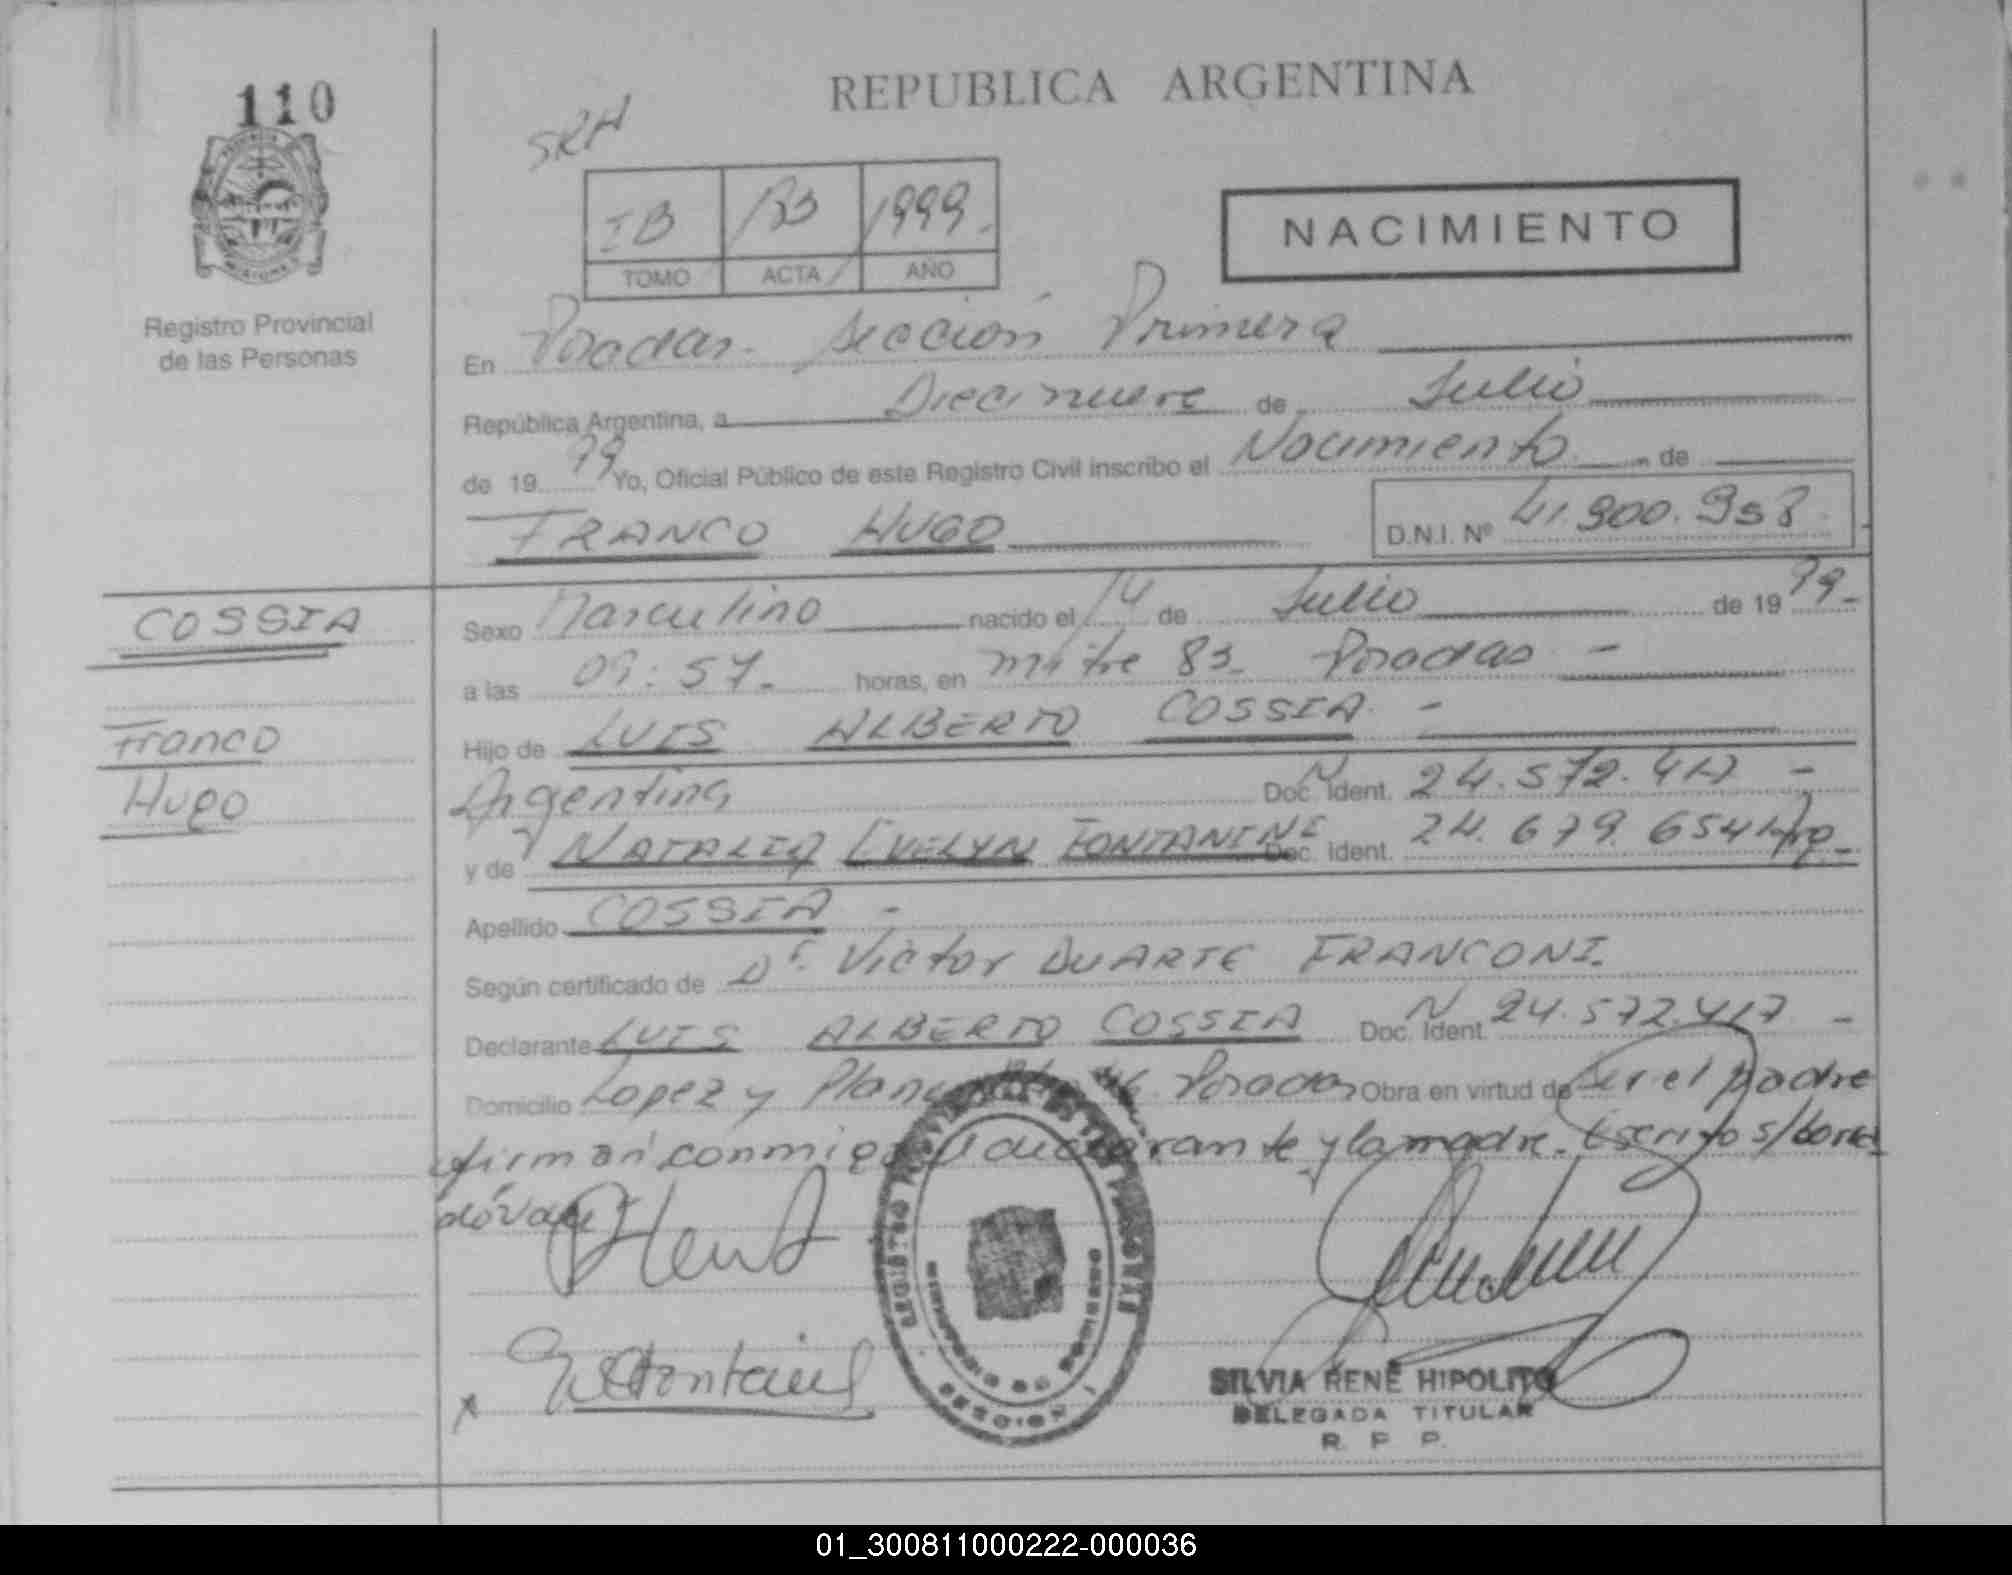 110
REPUBLICA ARGENTINA
SRH
IB 1999.
TOMO ACTA AÑO
NACIMIENTO
Registro Provincial
de las Personas
En Posadas. Sección Primera
República Argentina, a Diecinueve de Julio
de 19 99 Yo, Oficial Público de este Registro Civil inscribo el Nacimiento de
FRANCO HUGO D.N.I. Nº 41.900.958
COSSIA
Franco
Hugo
Sexo Masculino nacido el 14 de Julio de 19 99-
a las 09:57- horas, en mitre 83- Posadas -
Hijo de LUIS ALBERTO COSSIA -
Argentina Doc. Ident. N 24.572.417 -
y de NATALIA EVELYN FONTANINE Doc. Ident. 24.679.654 Arg-
Apellido COSSIA -
Según certificado de Dr. Victor DUARTE FRANCONI.
Declarante LUIS ALBERTO COSSIA Doc. Ident. N 24.572.417 -
Domicilio Lopez y Posadas Obra en virtud de Ser el padre
firman conmigo declarante y la madre.
REGISTRO PROVINCIAL DE LAS PERSONAS
MINISTERIO DE GOBIERNO
SECCION 1
SILVIA RENÉ HIPOLITO
DELEGADA TITULAR
R. P. P.
01_300811000222-000036